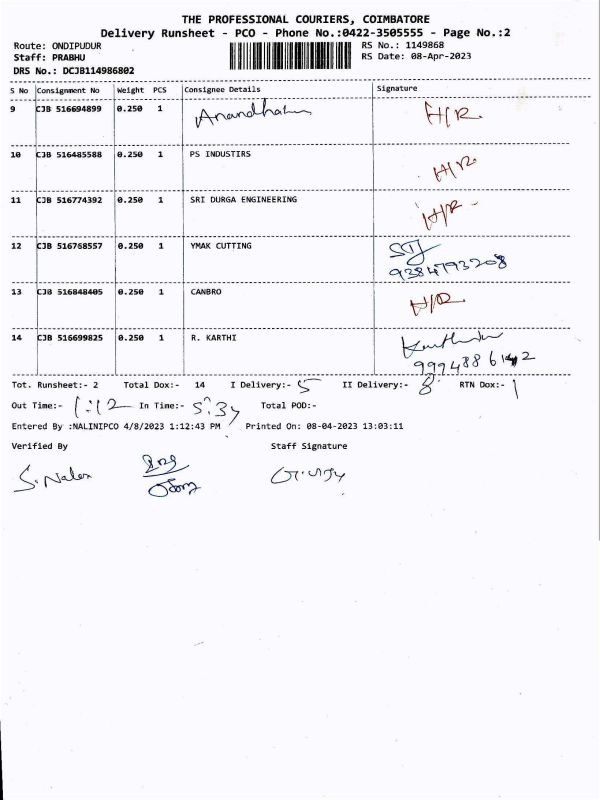 THE PROFESSIONAL COURIERS, COIMBATORE
Delivery Runsheet - PCO - Phone No.:0422-3505555 - Page No.:2
Route: ONDIPUDUR RS No.: 1149868
Staff: PRABHU RS Date: 08-Apr-2023
DRS No.: DCJB114986802
S No Consignment No Weight PCS Consignee Details Signature
9 CJB 516694899 0.250 1 H/R
10 CJB 516485588 0.250 1 PS INDUSTIRS H/R
11 CJB 516774392 0.250 1 SRI DURGA ENGINEERING H/R
12 CJB 516768557 0.250 1 YMAK CUTTING
9384793208
13 CJB 516848405 0.250 1 CANBRO H/R
14 CJB 516699825 0.250 1 R. KARTHI
Tot. Runsheet:- 2 Total Dox:- 14 I Delivery:- 5 II Delivery:- 8 RTN Dox:- 1
Out Time:- 1:12 In Time:- Total POD:-
Entered By :NALINIPCO 4/8/2023 1:12:43 PM Printed On: 08-04-2023 13:03:11
Verified By Staff Signature